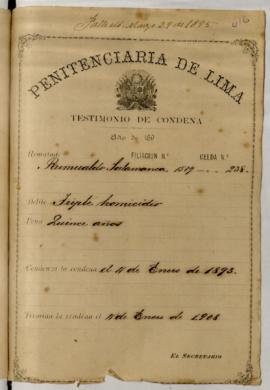 Falleció Marzo 29 de 1895
PENITENCIARIA DE LIMA
TESTIMONIO DE CONDENA
Año de 189
Rematado FILIACION N.° CELDA N.°
Rumualdo Salamanca 1579 238
Delito Triple homicidio
Pena Quince años
Comienza la condena el 4 de Enero de 1893.
Termina la condena el 4 de Enero de 1908
EL SECRETARIO